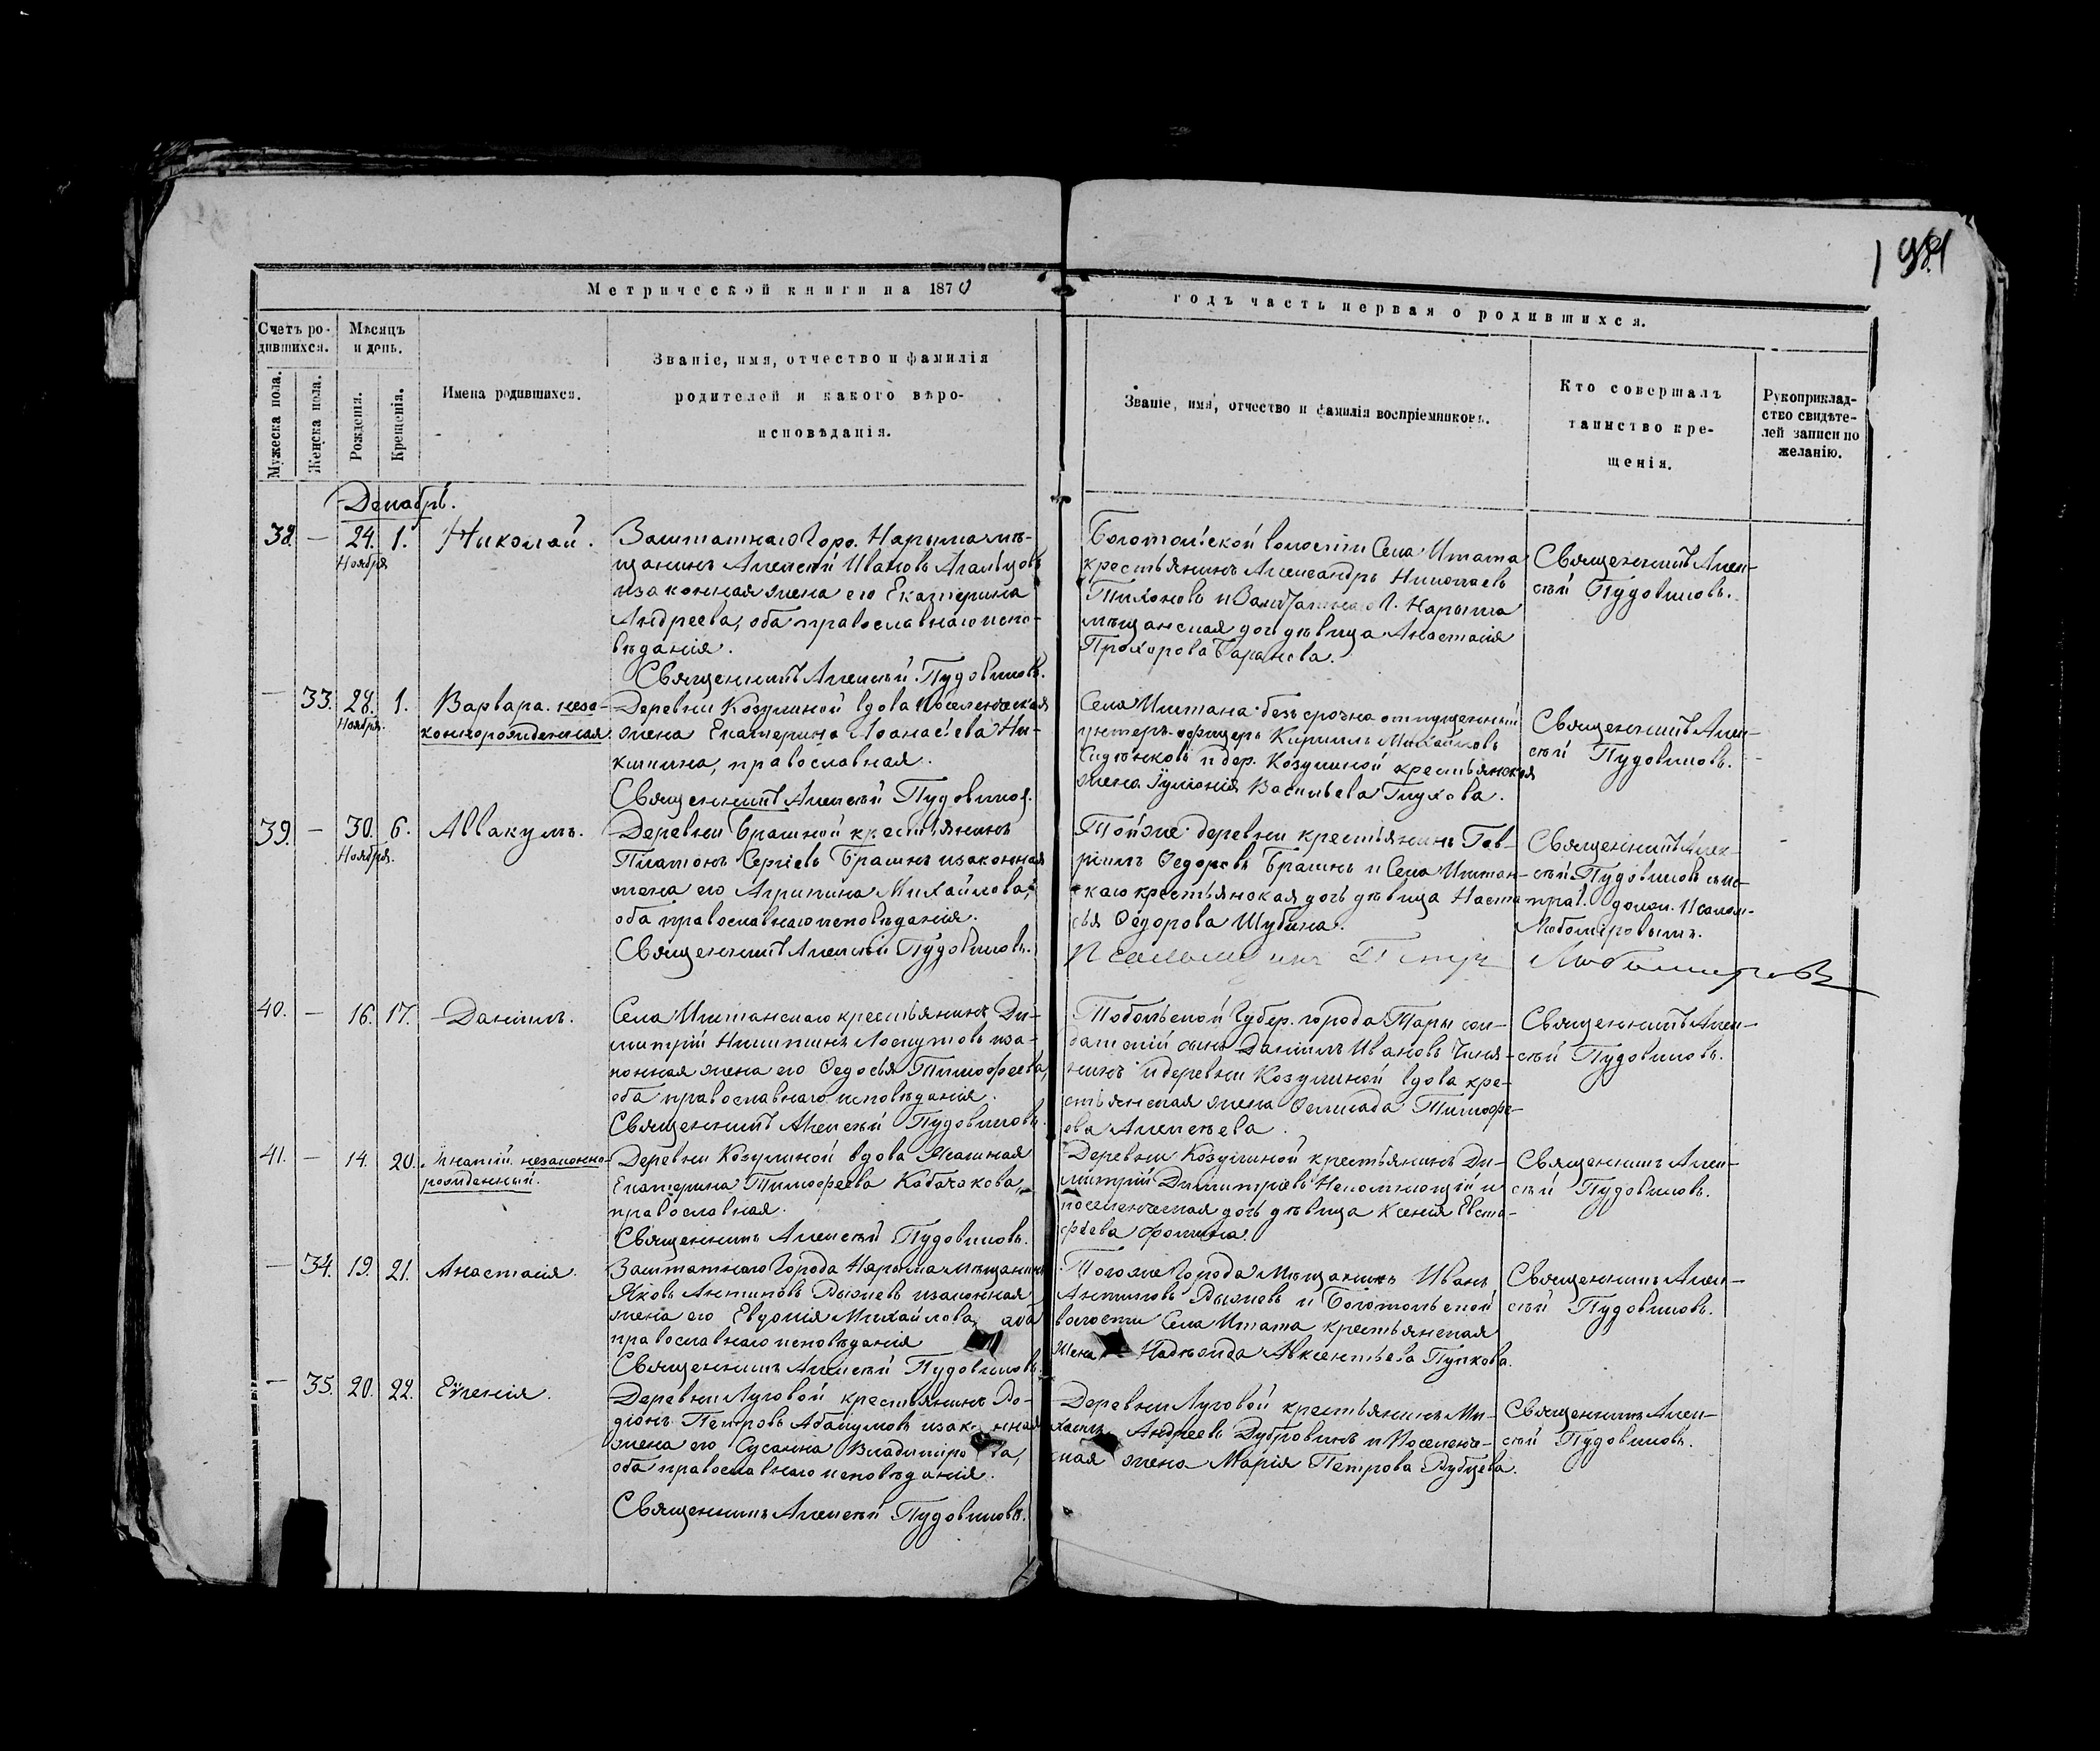 Метрической книги на 1870 годъ часть первая о родившихся.
Счетъ ро-
дившихся.
Мѣсяцъ
и день.
Мужеска пола.
Женска пола.
Рожденія.
Крещенія.
Имена родившихся.
Званіе, имя, отчество и фамилія
родителей и какого вѣро-
исповѣданія.
Званіе, имя, отчество и фамилія воспріемниковъ.
Кто совершалъ
таинство кре-
щенія.
Рукоприклад-
ство свидѣте-
лей записи по
желанію.
Декабрь.
38. — 24. 1. Николай.
Ноября
Заштатнаго Горо. Нарыма мѣ-
щанинъ Алексѣй Ивановъ
и законная жена его Екатерина
Андреева, оба православнаго испо-
вѣданія.
Священникъ Алексѣй Пудовиковъ.
Боготольской волости Села Итата
крестьянинъ Александръ Николаевъ
Тихоновъ и Заштатнаго Г. Нарыма
мѣщанская дочь дѣвица Анастасія
Прохорова Баранова.
Священникъ Алек-
сѣй Пудовиковъ.
— 33. 28. 1. Варвара. неза-
Ноября. коннорожденная
Деревни Козулиной вдова Поселенческая
жена Екатерина Аѳанасьева Ни-
кипина, православная.
Священникъ Алексѣй Пудовиков.
Села Иштана безсрочно отпущенный
унтеръ-офицеръ Кириллъ Михайловъ
Сидѣнковъ и дер. Козулиной крестьянская
жена Іуліанія Васильева Глухова.
Священникъ Алек-
сѣй Пудовиковъ.
39. — 30. 6. Аввакумъ.
Ноября.
Деревни Брагиной крестьянинъ
Платонъ Сергѣевъ Брагинъ и законная
жена его Агрипина Михайлова,
оба православнаго исповѣданія.
Священникъ Алексѣй Пудовиковъ.
Той же деревни крестьянинъ Гав-
ріилъ Ѳедоровъ Брагинъ и Села Иштан-
скаго крестьянская дочь дѣвица Наста-
сья Ѳедорова Шубина.
Псаломщикъ Петръ Любомировъ
Священникъ Алек-
сѣй Пудовиковъ съ ис-
прав. долж. Псалом.
Любомировымъ.
40. — 16. 17. Даніилъ.
Села Иштанскаго крестьянинъ Ди-
митрій Никитинъ Лоскутовъ и за-
конная жена его Ѳедосья Тимоѳеева,
оба православнаго исповѣданія.
Священникъ Алексѣй Пудовиковъ.
Тобольской Губер. города Тары сол-
датскій сынъ Даніилъ Ивановъ
и деревни Козулиной вдова кре-
стьянская жена Тимофе-
ева Алексѣева.
Священникъ Алек-
сѣй Пудовиковъ.
41. — 14. 20. Игнатій. незаконно-
рожденный.
Деревни Козулиной вдова
Екатерина Тимоѳеева Кабакова,
православная.
Священникъ Алексѣй Пудовиковъ.
Деревни Козулиной крестьянинъ Ди-
митрій Димитріевъ Непомнющій и
поселенческая дочь дѣвица Ксенія Евста-
фьева Фомина.
Священникъ Алек-
сѣй Пудовиковъ.
— 34. 19. 21. Анастасія.
Заштатнаго Города Нарыма мѣщанинъ
Яковъ Антиповъ Рыжевъ и законная
жена его Евдокія Михайлова, оба
православнаго исповѣданія
Священникъ Алексѣй Пудовиковъ.
Того же Города Мѣщанинъ Иванъ
Антиповъ Рыжевъ и Боготольской
волости Села Итата крестьянская
жена Надежда Авксентьева Пупкова.
Священникъ Алек-
сѣй Пудовиковъ.
— 35. 20. 22. Евгенія.
Деревни Луговой крестьянинъ Ро-
діонъ Петровъ Абакумовъ и законная
жена его Сусанна Владимірова,
оба православнаго исповѣданія.
Священникъ Алексѣй Пудовиковъ.
Деревни Луговой крестьянинъ Ми-
хаилъ Андреевъ Дубровинъ и Поселенче-
ская жена Марія Петрова Рубцева.
Священникъ Алек-
сѣй Пудовиковъ.